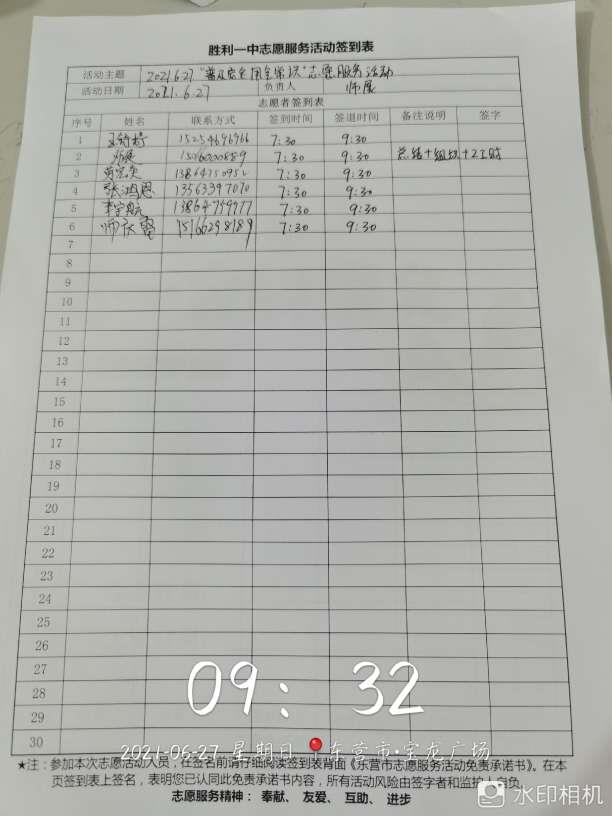 胜利一中志愿服务活动签到表
活动主题 2021.6.27 "普及安全用全常识"志愿服务活动
活动日期 2021.6.27 负责人 师晟
志愿者签到表
序号 姓名 联系方式 签到时间 签退时间 备注说明 签字
1 15254696966 7:30 9:30
2 7:30 9:30 总结+组织+2工时
3 7:30 9:30
4 张鸿恩 13563397070 7:30 9:30
5 7:30 9:30
6 15166298989 7:30 9:30
7
8
9
10
11
12
13
14
15
16
17
18
19
20
21
22
23
24
25
26
27
28
29
30
09:32
2021-06-27 星期日 东营市·宝龙广场
★注：参加本次志愿活动人员，在签名前请仔细阅读签到表背面《东营市志愿服务活动免责承诺书》。在本
页签到表上签名，表明您已认同此免责承诺书内容，所有活动风险由签字者和监护人自负。
志愿服务精神： 奉献、 友爱、 互助、 进步
水印相机